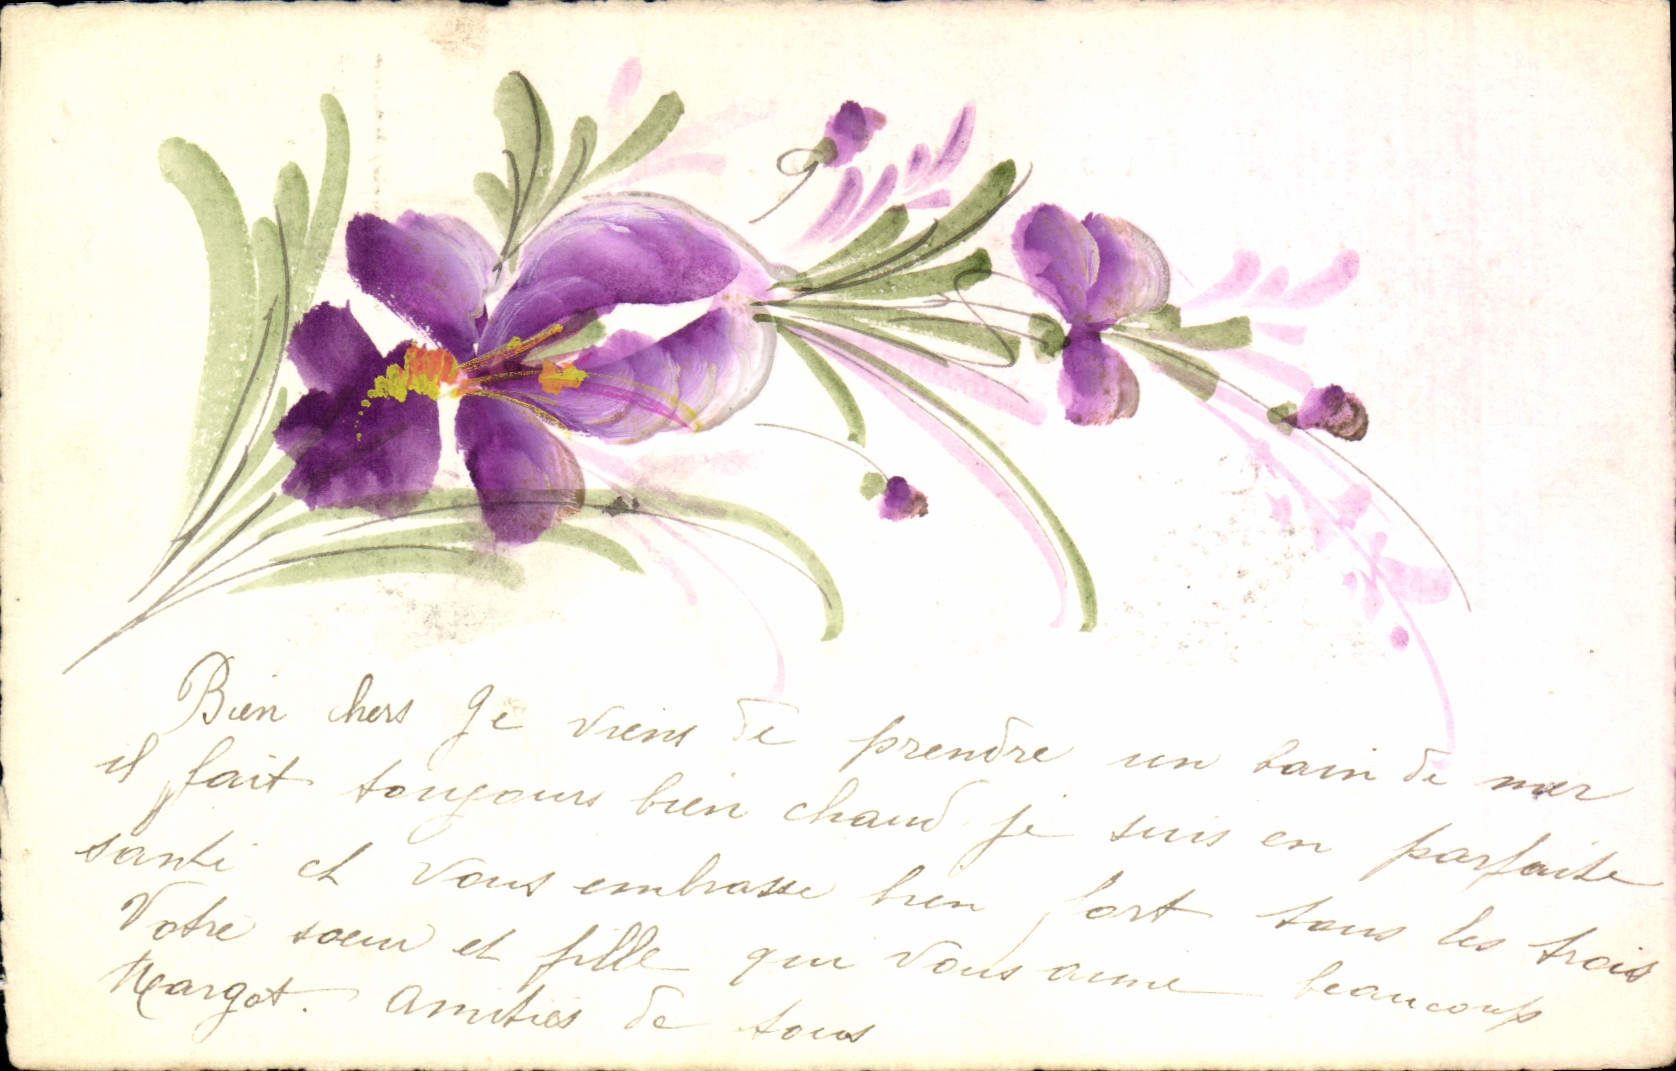 Bien chers Je viens de prendre un bain de mer
il fait toujours bien chaud je suis en parfaite
santé et vous embrasse bien fort tous les trois
Votre soeur et fille qui vous aime beaucoup
Margot. Amitiés de tous